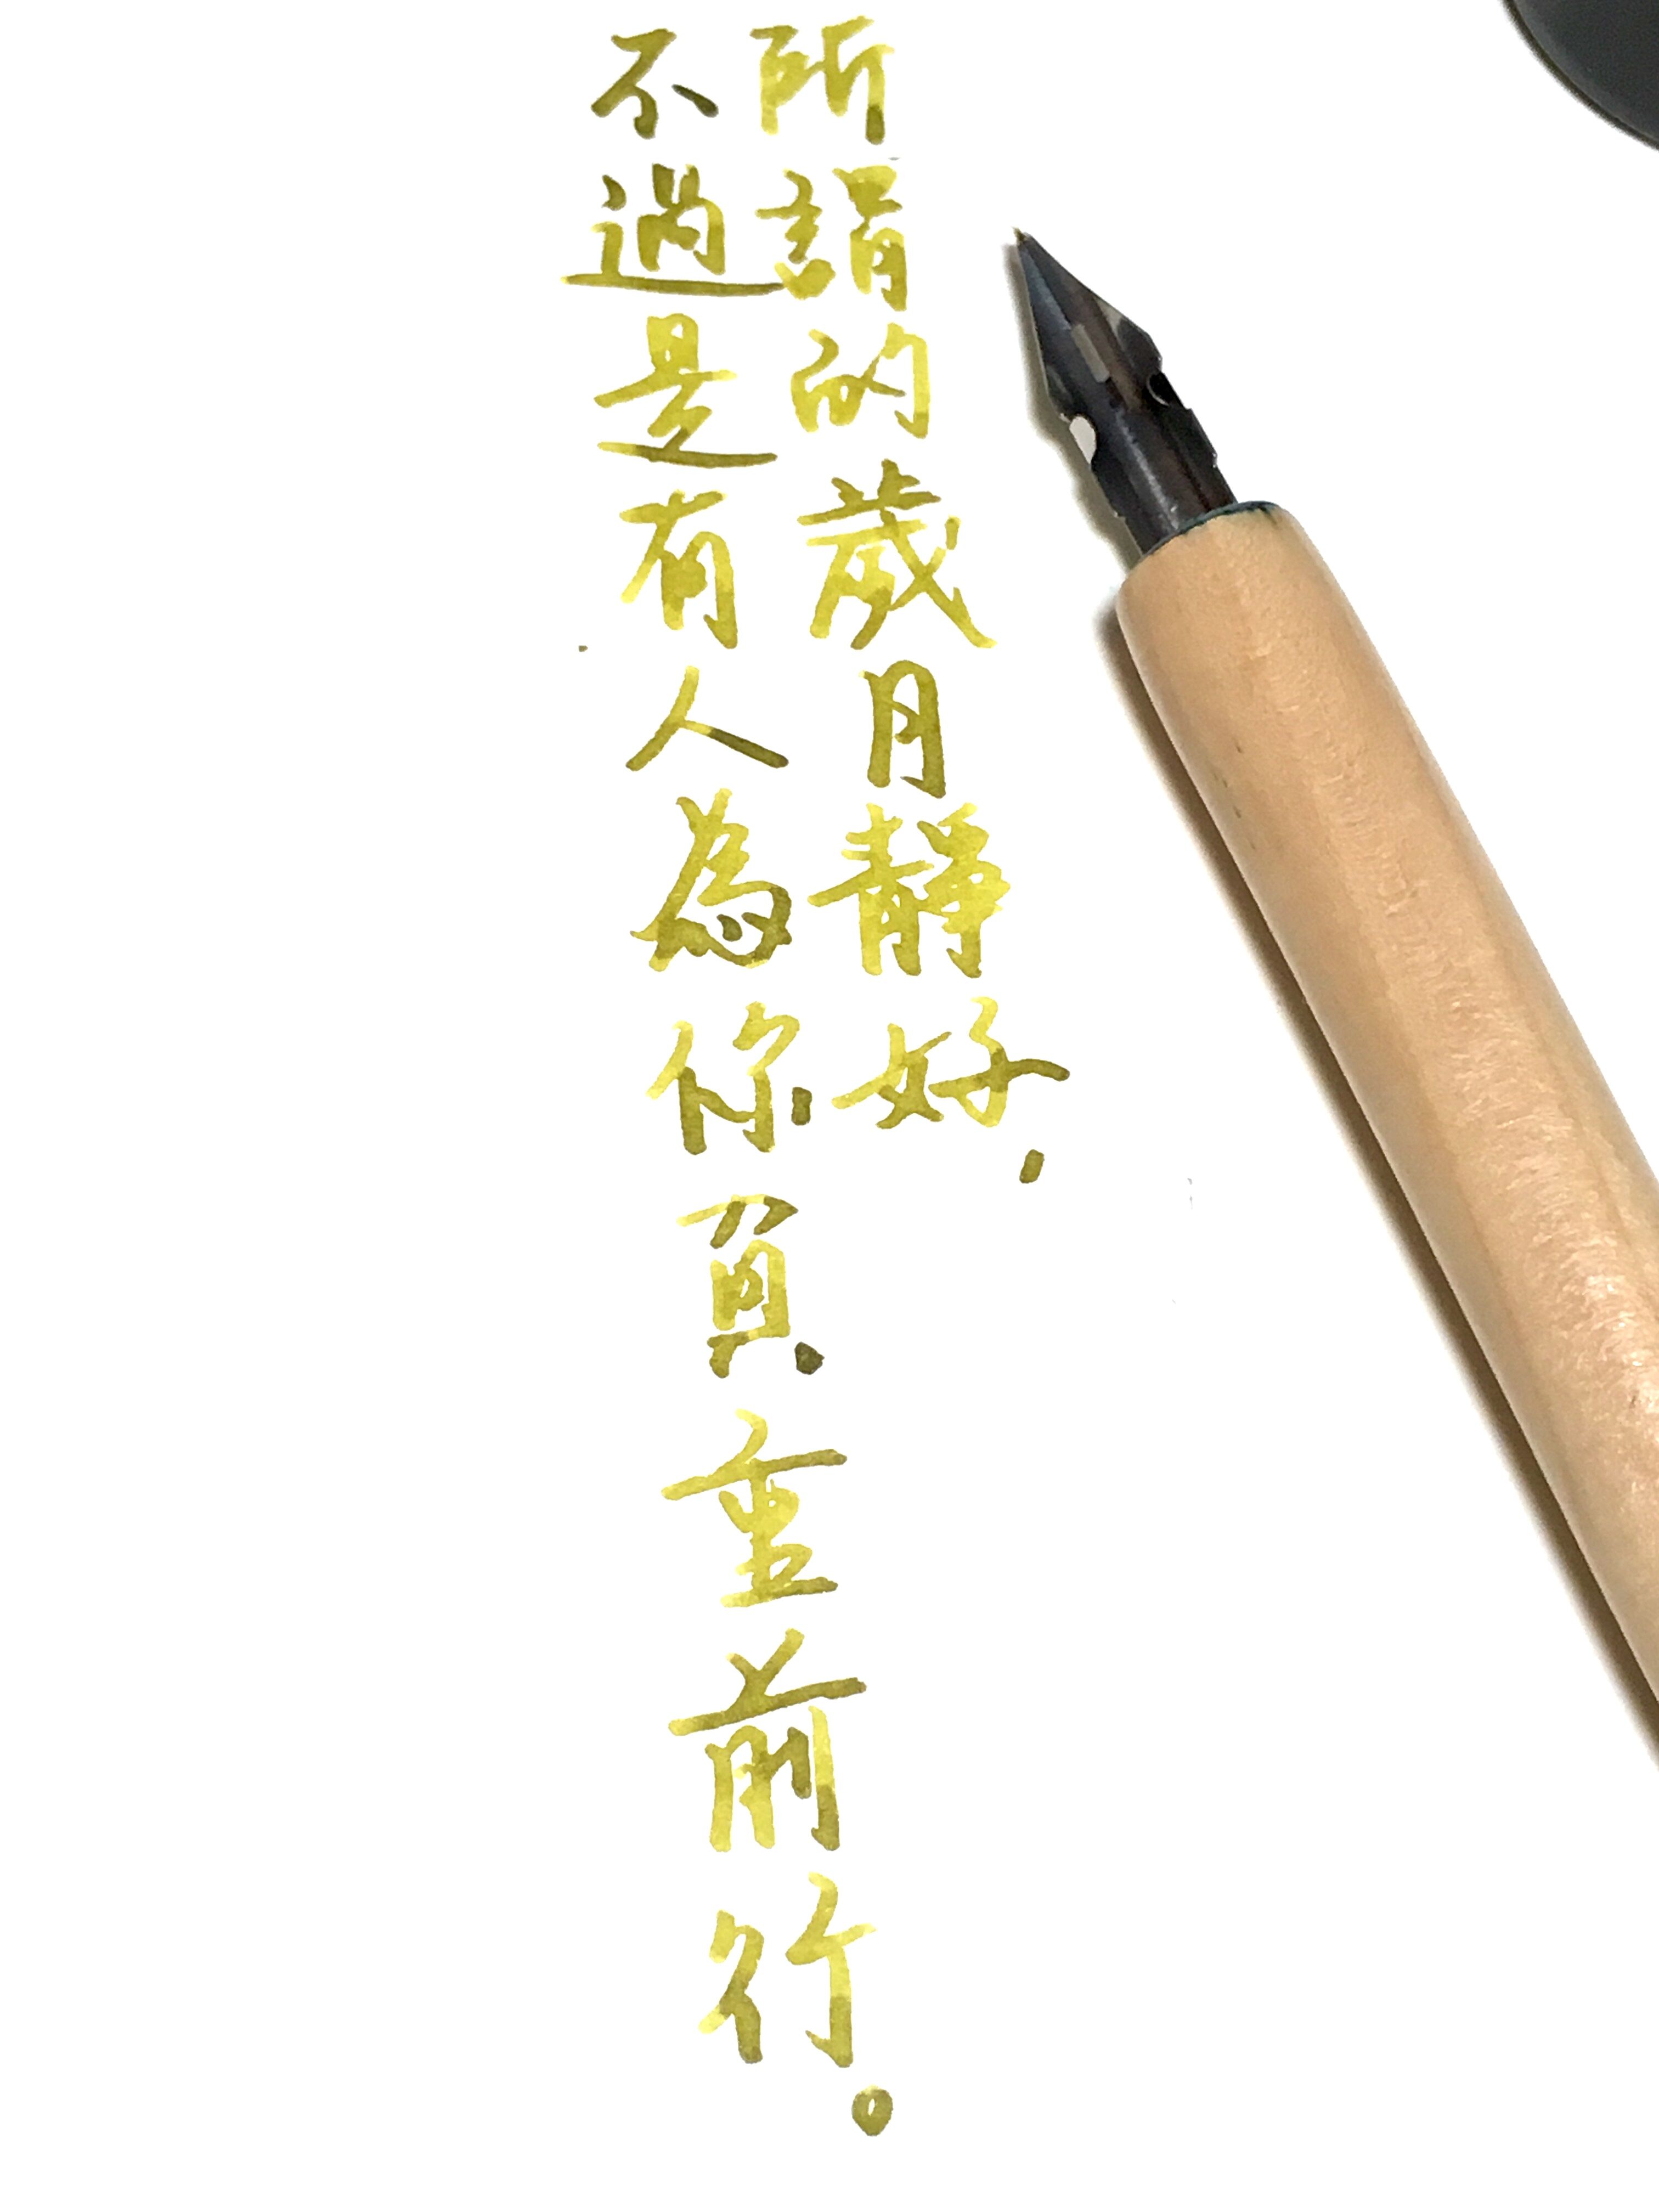 所謂的歲月靜好，
不過是有人為你負重前行。